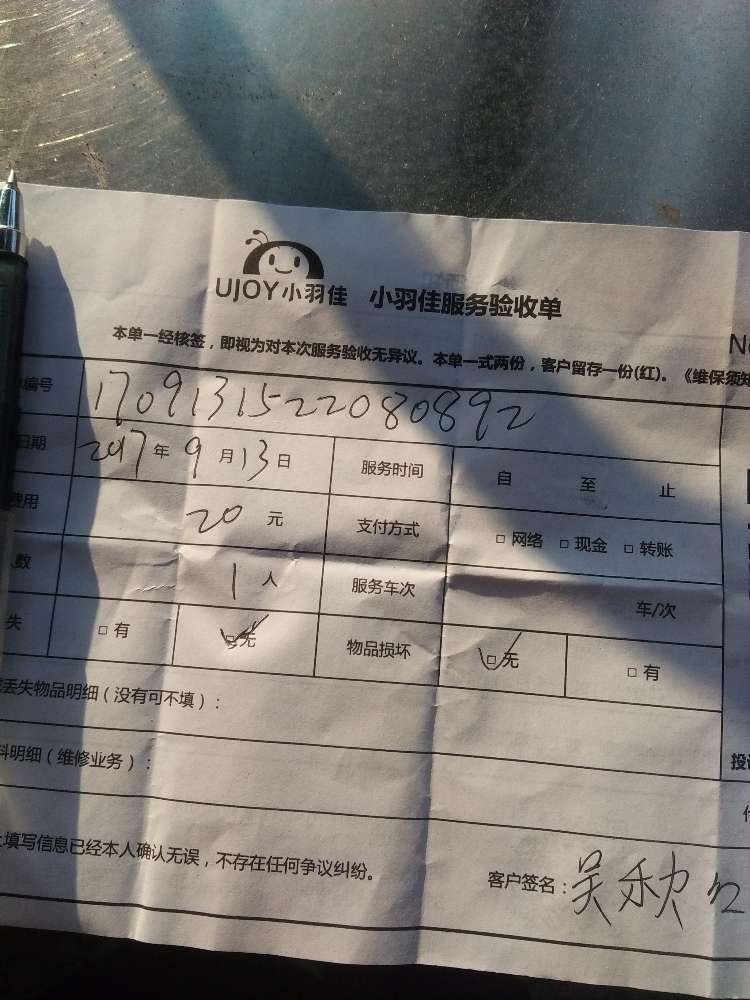 UJOY小羽佳 小羽佳服务验收单
本单一经核签，即视为对本次服务验收无异议。本单一式两份，客户留存一份(红)。《维保须知
编号 1709131522080892
日期 2017年 9月13日 服务时间 自 至 止
费用 20 元 支付方式 □网络 □现金 □转账
人数 1人 服务车次 车/次
失 □有 □无 物品损坏 □无 □有
丢失物品明细（没有可不填）：
料明细（维修业务）：
投诉
上填写信息已经本人确认无误，不存在任何争议纠纷。
客户签名：吴秋